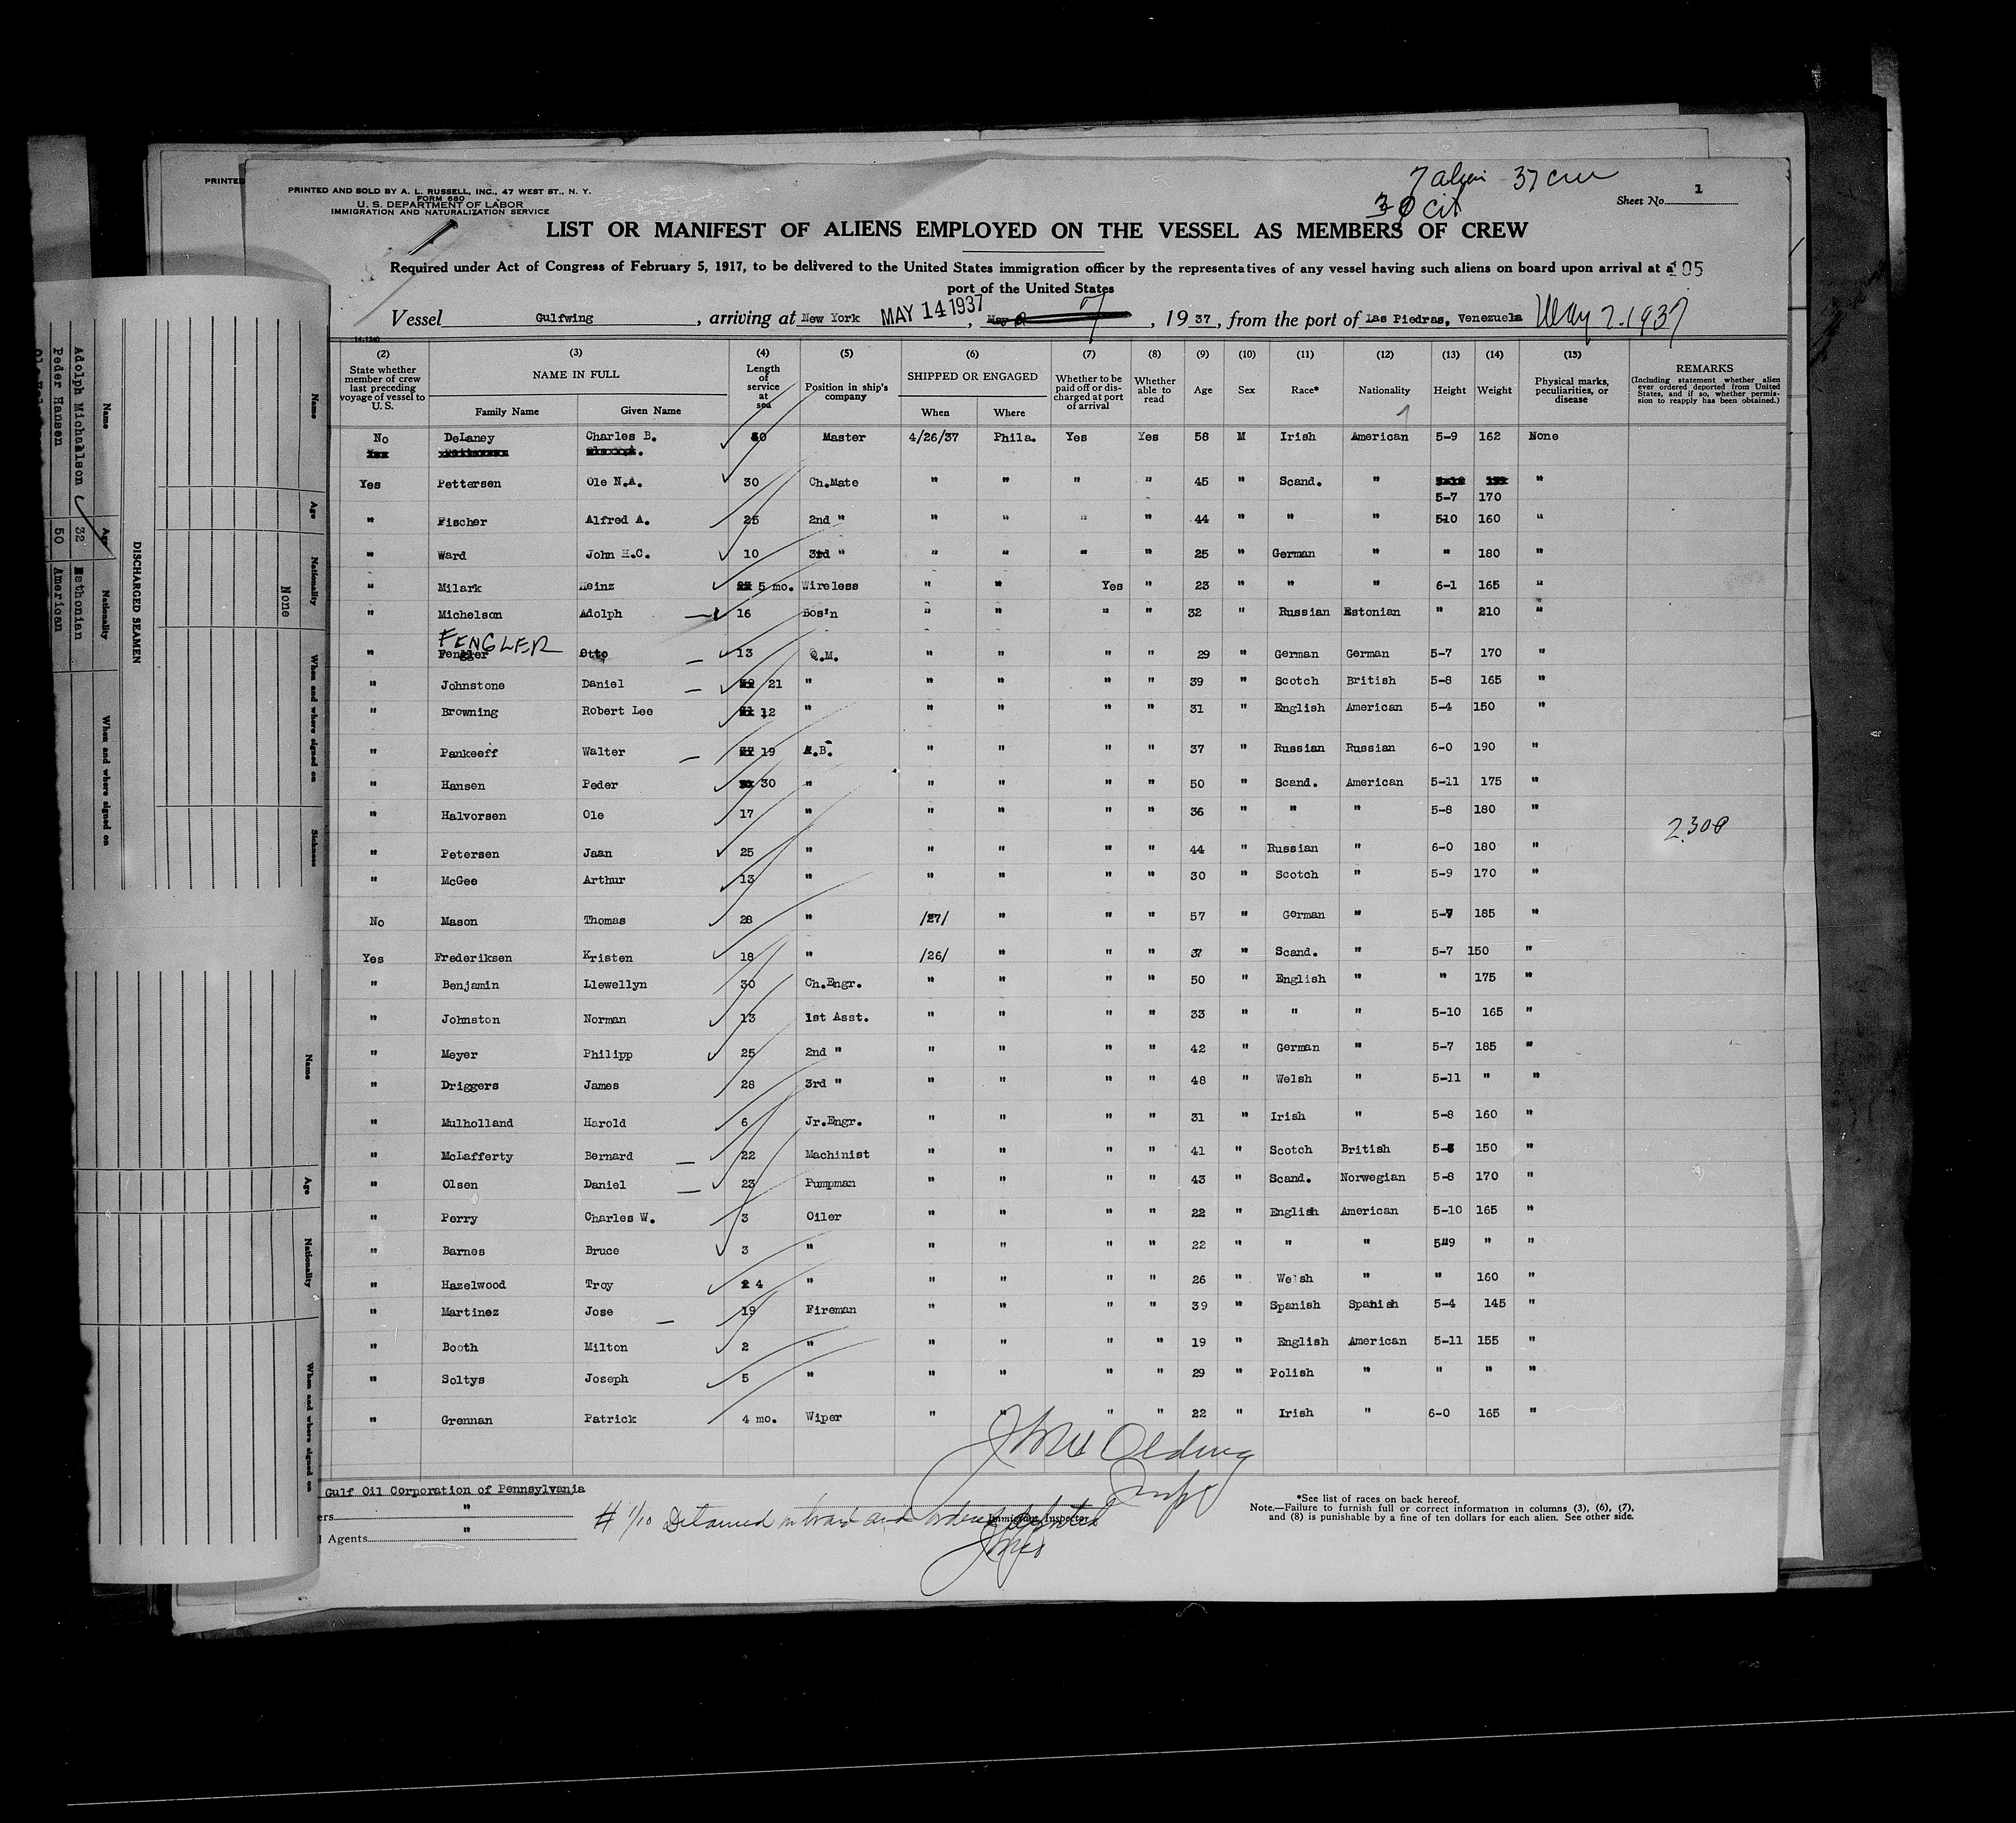 PRINTED
PRINTED AND SOLD BY A. L. RUSSELL, INC., 47 WEST ST., N. Y.
FORM 680
U. S. DEPARTMENT OF LABOR
IMMIGRATION AND NATURALIZATION SERVICE
7 alien 37 crew
30 cit
Sheet No. 1
LIST OR MANIFEST OF ALIENS EMPLOYED ON THE VESSEL AS MEMBERS OF CREW
Required under Act of Congress of February 5, 1917, to be delivered to the United States immigration officer by the representatives of any vessel having such aliens on board upon arrival at a 105
port of the United States
Vessel Gulfwing, arriving at New York MAY 14 1937, May 7, 1937, from the port of Las Piedras, Venezuela May 7. 1937
14-1240
(2) (3) (4) (5) (6) (7) (8) (9) (10) (11) (12) (13) (14) (15)
State whether member of crew last preceding voyage of vessel to U. S. NAME IN FULL Family Name Given Name Length of service at sea Position in ship's company SHIPPED OR ENGAGED When Where Whether to be paid off or discharged at port of arrival Whether able to read Age Sex Race* Nationality Height Weight Physical marks, peculiarities, or disease REMARKS (Including statement whether alien ever ordered deported from United States, and if so, whether permission to reapply has been obtained.)
No DeLaney Charles B. 40 Master 4/26/37 Phila. Yes Yes 58 M Irish American 5-9 162 None
Yes Pettersen Ole N.A. 30 Ch.Mate " " " " 45 " Scand. " 5-7 170 "
" Fischer Alfred A. 25 2nd " " " " " 44 " " " 510 160 "
" Ward John H.C. 10 3rd " " " " " 25 " German " " 180 "
" Milark Heinz 5 mo. Wireless " " Yes " 23 " " " 6-1 165 "
" Michelson Adolph 16 Bos'n " " " " 32 " Russian Estonian " 210 "
FENGLER
" Fengler Otto 13 Q.M. " " " " 29 " German German 5-7 170 "
" Johnstone Daniel 21 " " " " " 39 " Scotch British 5-8 165 "
" Browning Robert Lee 12 " " " " " 31 " English American 5-4 150 "
" Pankeeff Walter 19 A.B. " " " " 37 " Russian Russian 6-0 190 "
" Hansen Peder 30 " " " " " 50 " Scand. American 5-11 175 "
" Halvorsen Ole 17 " " " " " 36 " " " 5-8 180 "
2300
" Petersen Jaan 25 " " " " " 44 " Russian " 6-0 180 "
" McGee Arthur 13 " " " " " 30 " Scotch " 5-9 170 "
No Mason Thomas 28 " /27/ " " " 57 " German " 5-7 185 "
Yes Frederiksen Kristen 18 " /26/ " " " 37 " Scand. " 5-7 150 "
" Benjamin Llewellyn 30 Ch.Engr. " " " " 50 " English " " 175 "
" Johnston Norman 13 1st Asst. " " " " 33 " " " 5-10 165 "
" Meyer Philipp 25 2nd " " " " " 42 " German " 5-7 185 "
" Driggers James 28 3rd " " " " " 48 " Welsh " 5-11 " "
" Mulholland Harold 6 Jr.Engr. " " " " 31 " Irish " 5-8 160 "
" McLafferty Bernard 22 Machinist " " " " 41 " Scotch British 5- 150 "
" Olsen Daniel 23 Pumpman " " " " 43 " Scand. Norwegian 5-8 170 "
" Perry Charles W. 3 Oiler " " " " 22 " English American 5-10 165 "
" Barnes Bruce 3 " " " " " 22 " " " 5-9 " "
" Hazelwood Troy 4 " " " " " 26 " Welsh " " 160 "
" Martinez Jose 19 Fireman " " " " 39 " Spanish Spanish 5-4 145 "
" Booth Milton 2 " " " " " 19 " English American 5-11 155 "
" Soltys Joseph 5 " " " " " 29 " Polish " " " "
" Grennan Patrick 4 mo. Wiper " " " " 22 " Irish " 6-0 165 "
Gulf Oil Corporation of Pennsylvania
ers "
Agents "
# 1/10 Detained on board and ordered deported
Immigrant Inspector
*See list of races on back hereof.
Note.—Failure to furnish full or correct information in columns (3), (6), (7),
and (8) is punishable by a fine of ten dollars for each alien. See other side.
DISCHARGED SEAMEN
Name Age Nationality When and where signed on
Adolph Michaelson 32 Esthonian
Peder Hansen 50 American
Name Age Nationality When and where signed on Sickness
None
Name Age Nationality When and where signed on